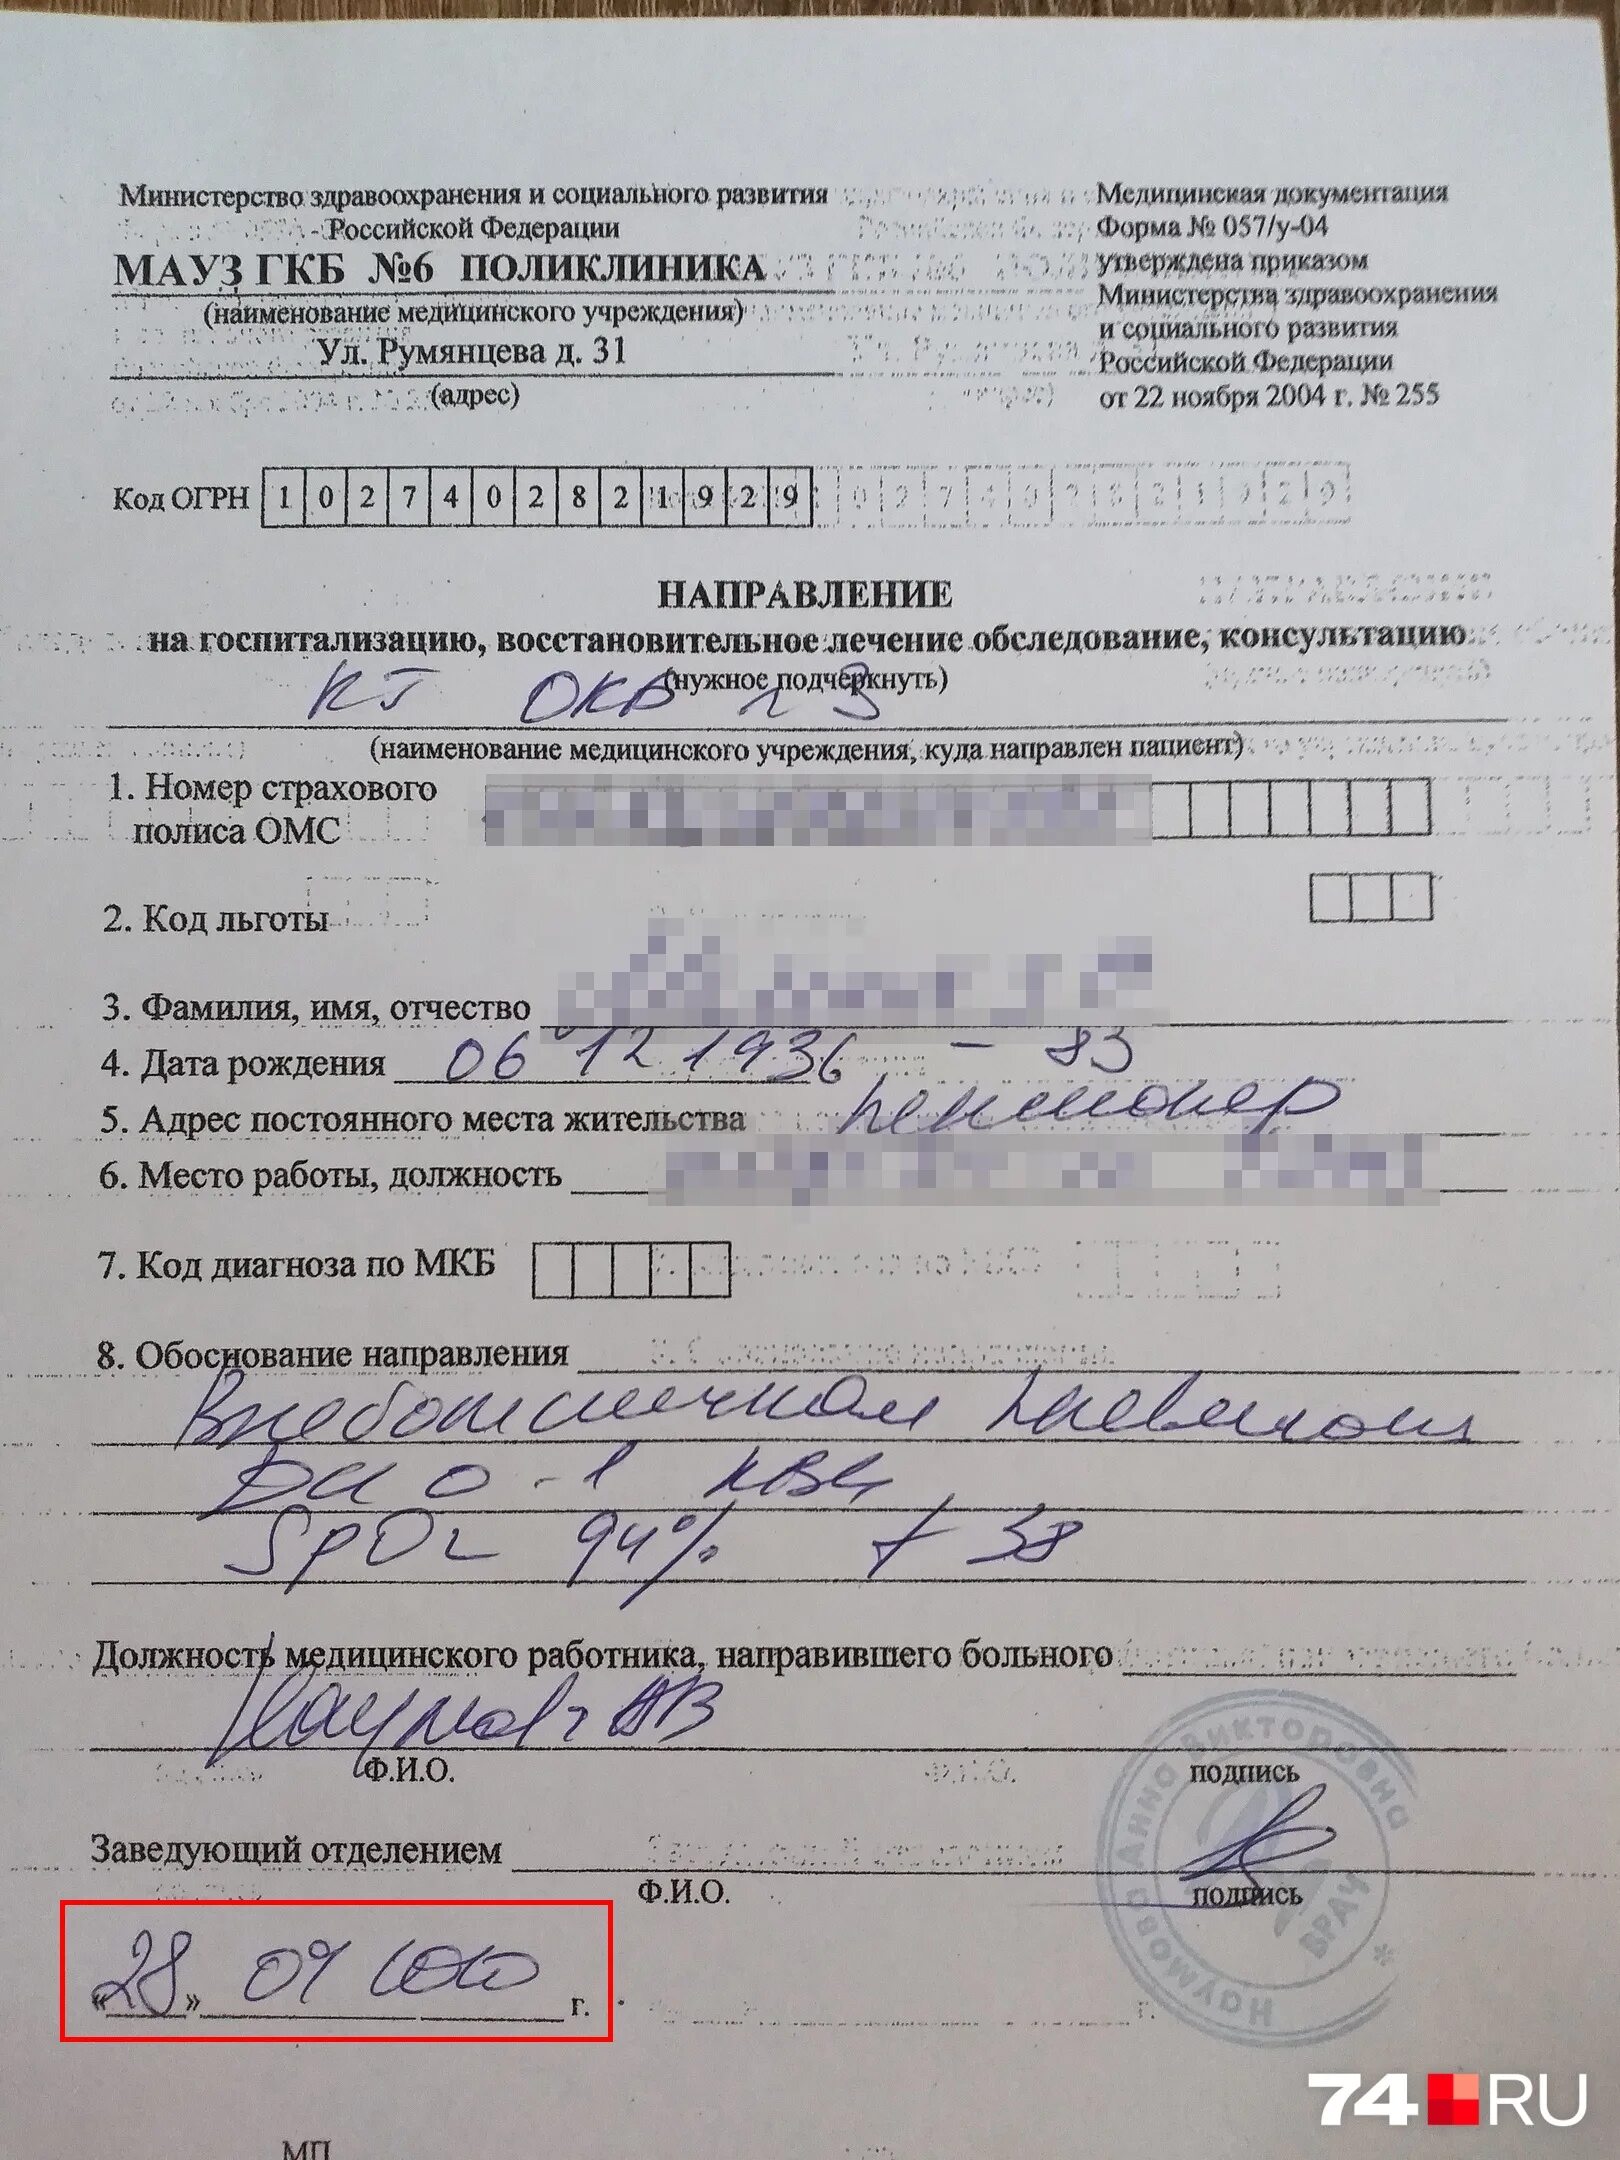 Министерство здравоохранения и социального развития
Российской Федерации
МАУЗ ГКБ №6 ПОЛИКЛИНИКА
(наименование медицинского учреждения)
Ул. Румянцева д. 31
(адрес)
Медицинская документация
Форма № 057/у-04
утверждена приказом
Министерства здравоохранения
и социального развития
Российской Федерации
от 22 ноября 2004 г. № 255
Код ОГРН 1 0 2 7 4 0 2 8 2 1 9 2 9
НАПРАВЛЕНИЕ
на госпитализацию, восстановительное лечение обследование, консультацию
(нужное подчеркнуть)
КТ ОКБ 3
(наименование медицинского учреждения, куда направлен пациент)
1. Номер страхового
полиса ОМС
2. Код льготы
3. Фамилия, имя, отчество
4. Дата рождения 06 12 1936 - 83
5. Адрес постоянного места жительства пенсионер
6. Место работы, должность
7. Код диагноза по МКБ
8. Обоснование направления
Внебольничная пневмония
SpO2 94% t 38
Должность медицинского работника, направившего больного
Наумова АВ
Ф.И.О. подпись
Заведующий отделением
Ф.И.О. подпись
Наумова Анна Викторовна * ВРАЧ
«28» 09 2020 г.
МП
74 RU